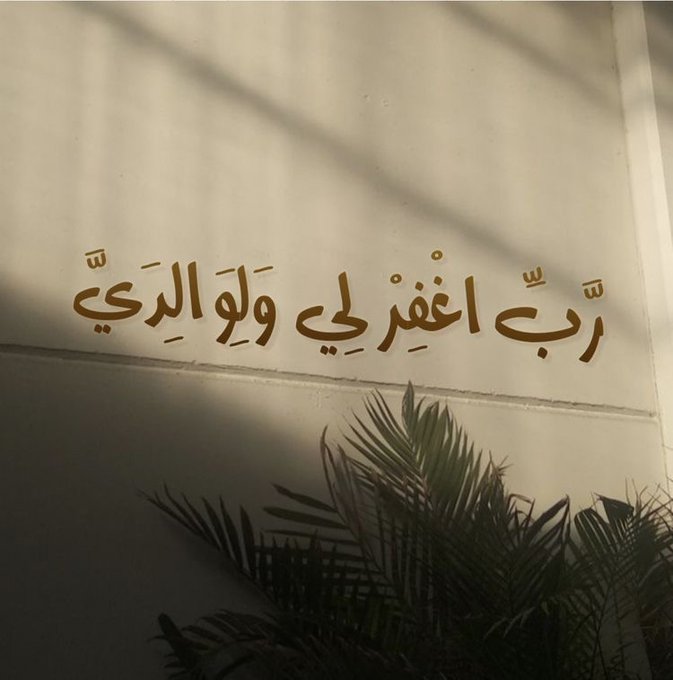 رَّبِّ اغْفِرْ لِي وَلِوَالِدَيَّ